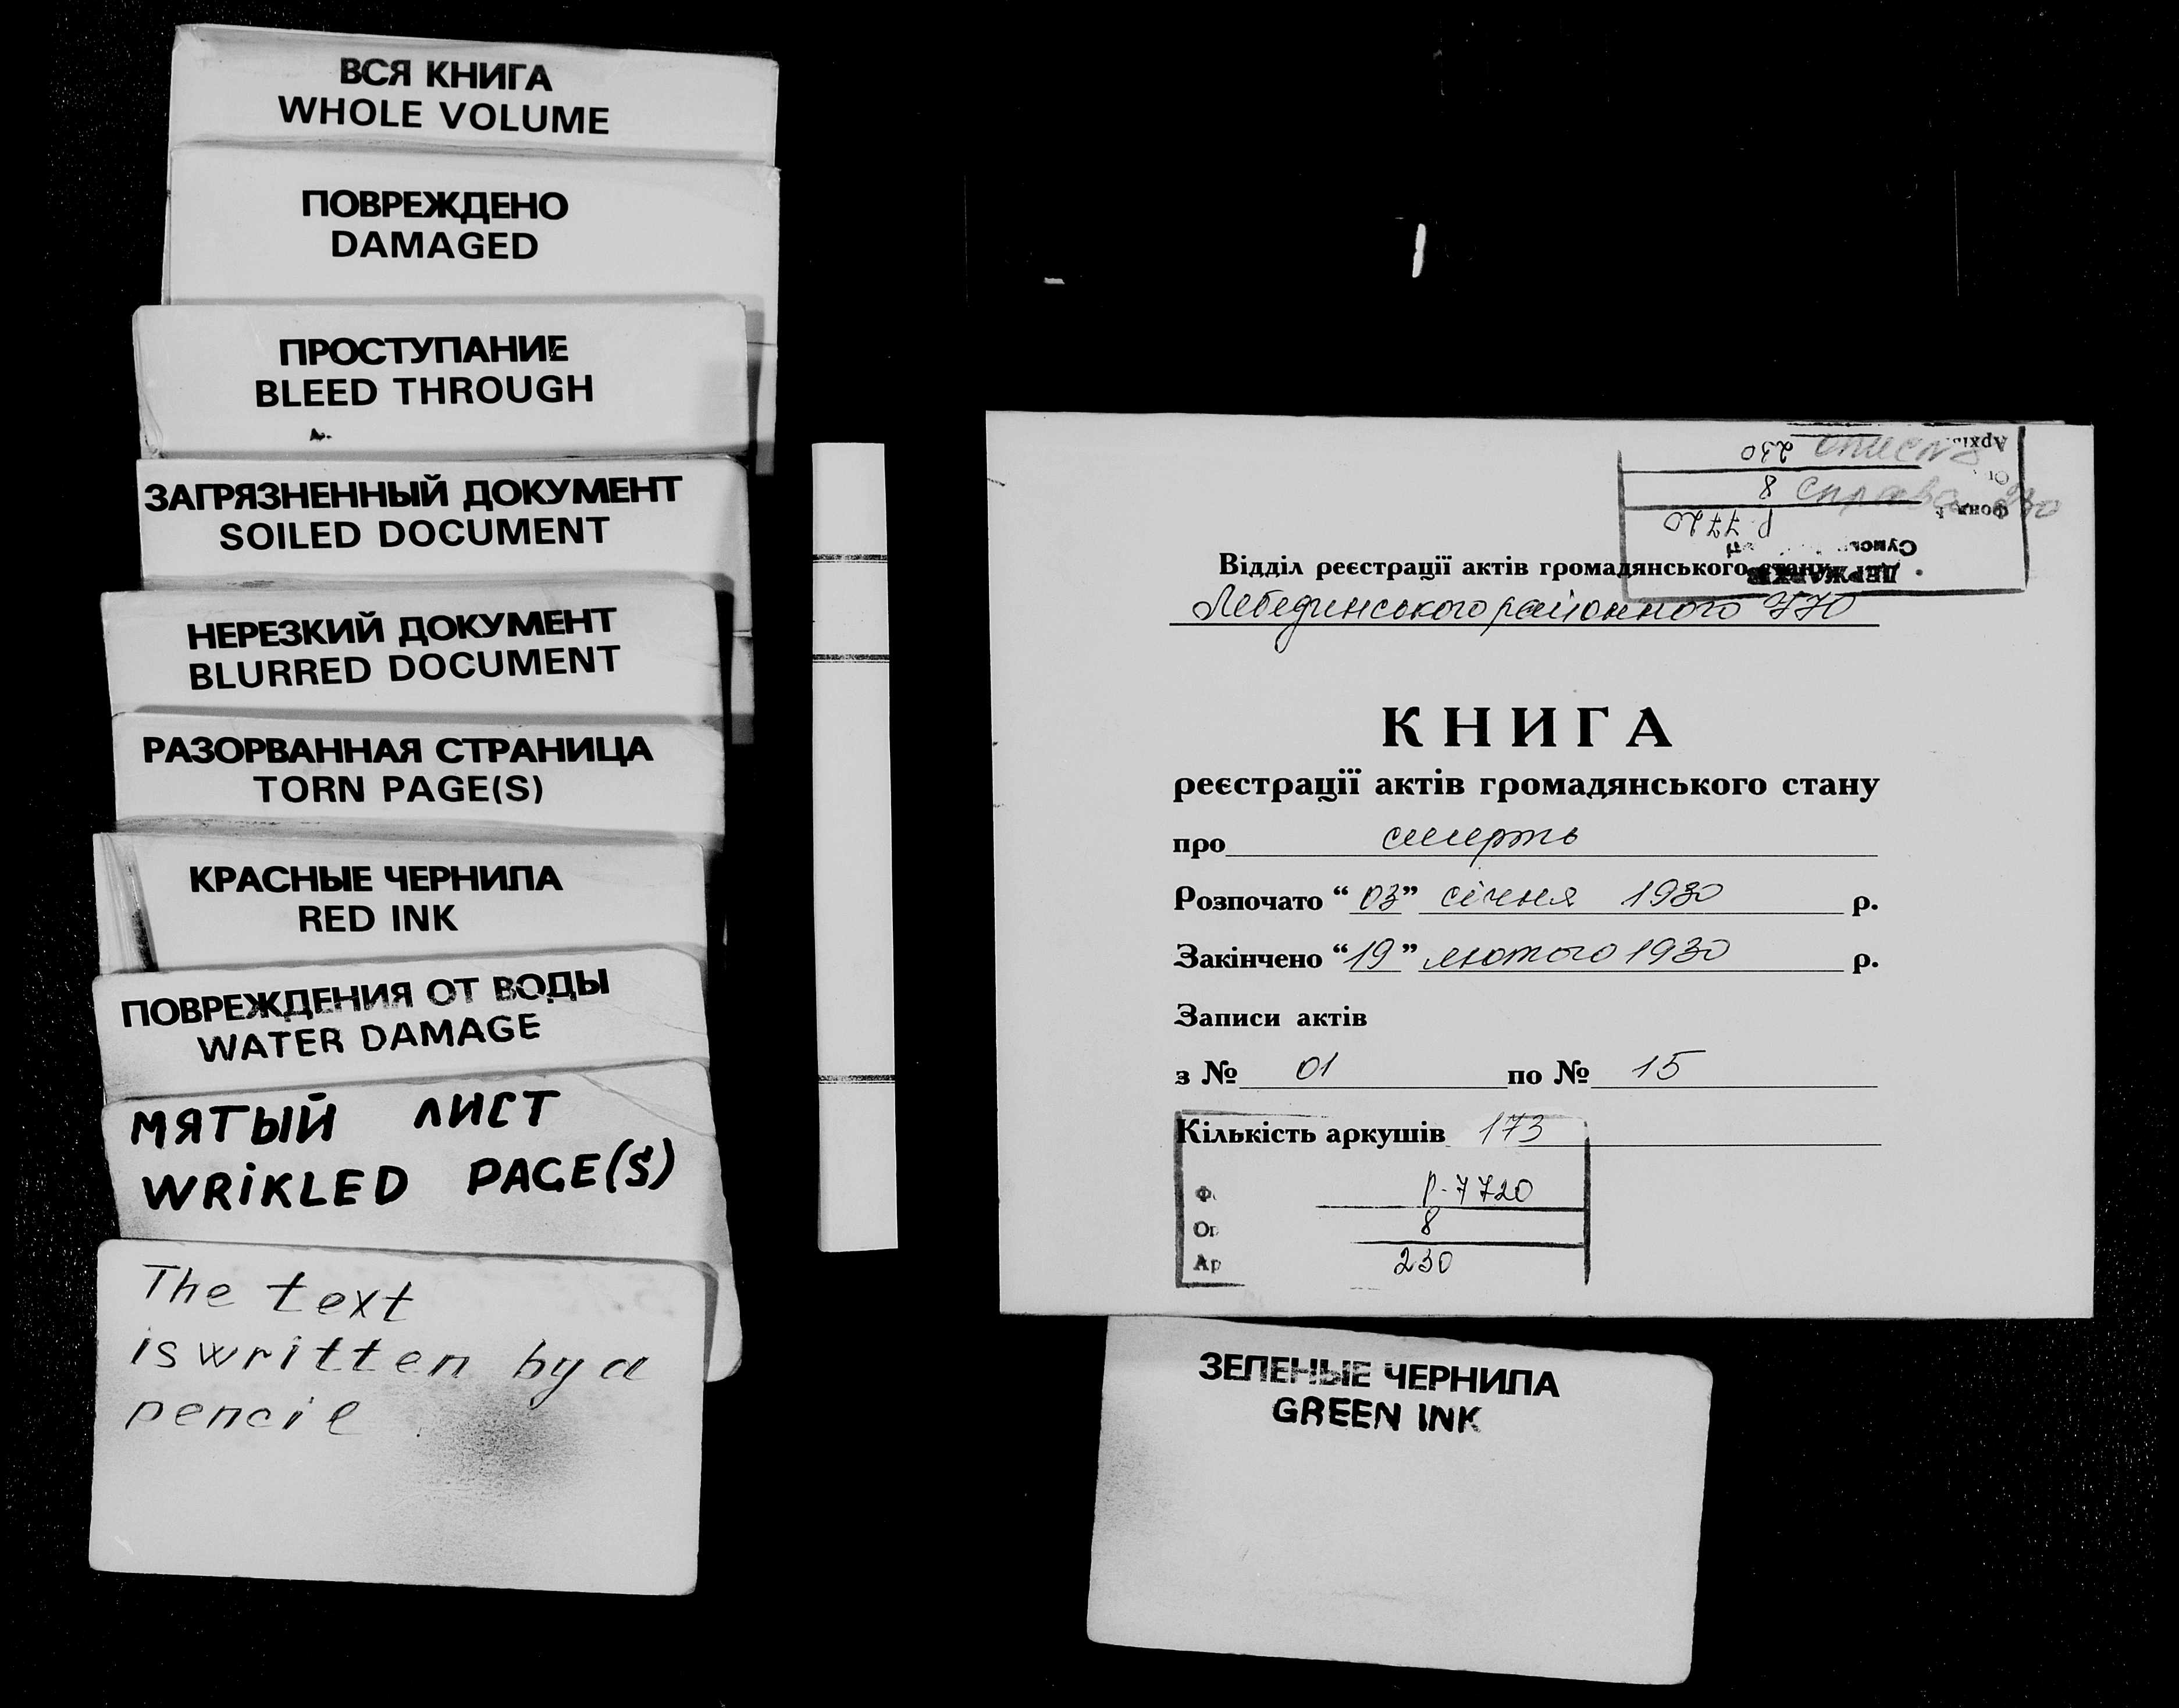 ВСЯ КНИГА
WHOLE VOLUME
ПОВРЕЖДЕНО
DAMAGED
ПРОСТУПАНИЕ
BLEED THROUGH
ЗАГРЯЗНЕННЫЙ ДОКУМЕНТ
SOILED DOCUMENT
НЕРЕЗКИЙ ДОКУМЕНТ
BLURRED DOCUMENT
РАЗОРВАННАЯ СТРАНИЦА
TORN PAGE(S)
КРАСНЫЕ ЧЕРНИЛА
RED INK
ПОВРЕЖДЕНИЯ ОТ ВОДЫ
WATER DAMAGE
МЯТЫЙ ЛИСТ
WRIKLED PAGE(S)
The text
is written by a
pencil
ДЕРЖАРХІВ
Р 7720
8
230
справа 230
Відділ реєстрації актів громадянського стану
Лебединського районного
КНИГА
реєстрації актів громадянського стану
про смерть
Розпочато "03" січня 1930 р.
Закінчено "19" лютого 1930 р.
Записи актів
з № 01 по № 15
Кількість аркушів 173
Р-7720
8
Ар 230
ЗЕЛЕНЫЕ ЧЕРНИЛА
GREEN INK